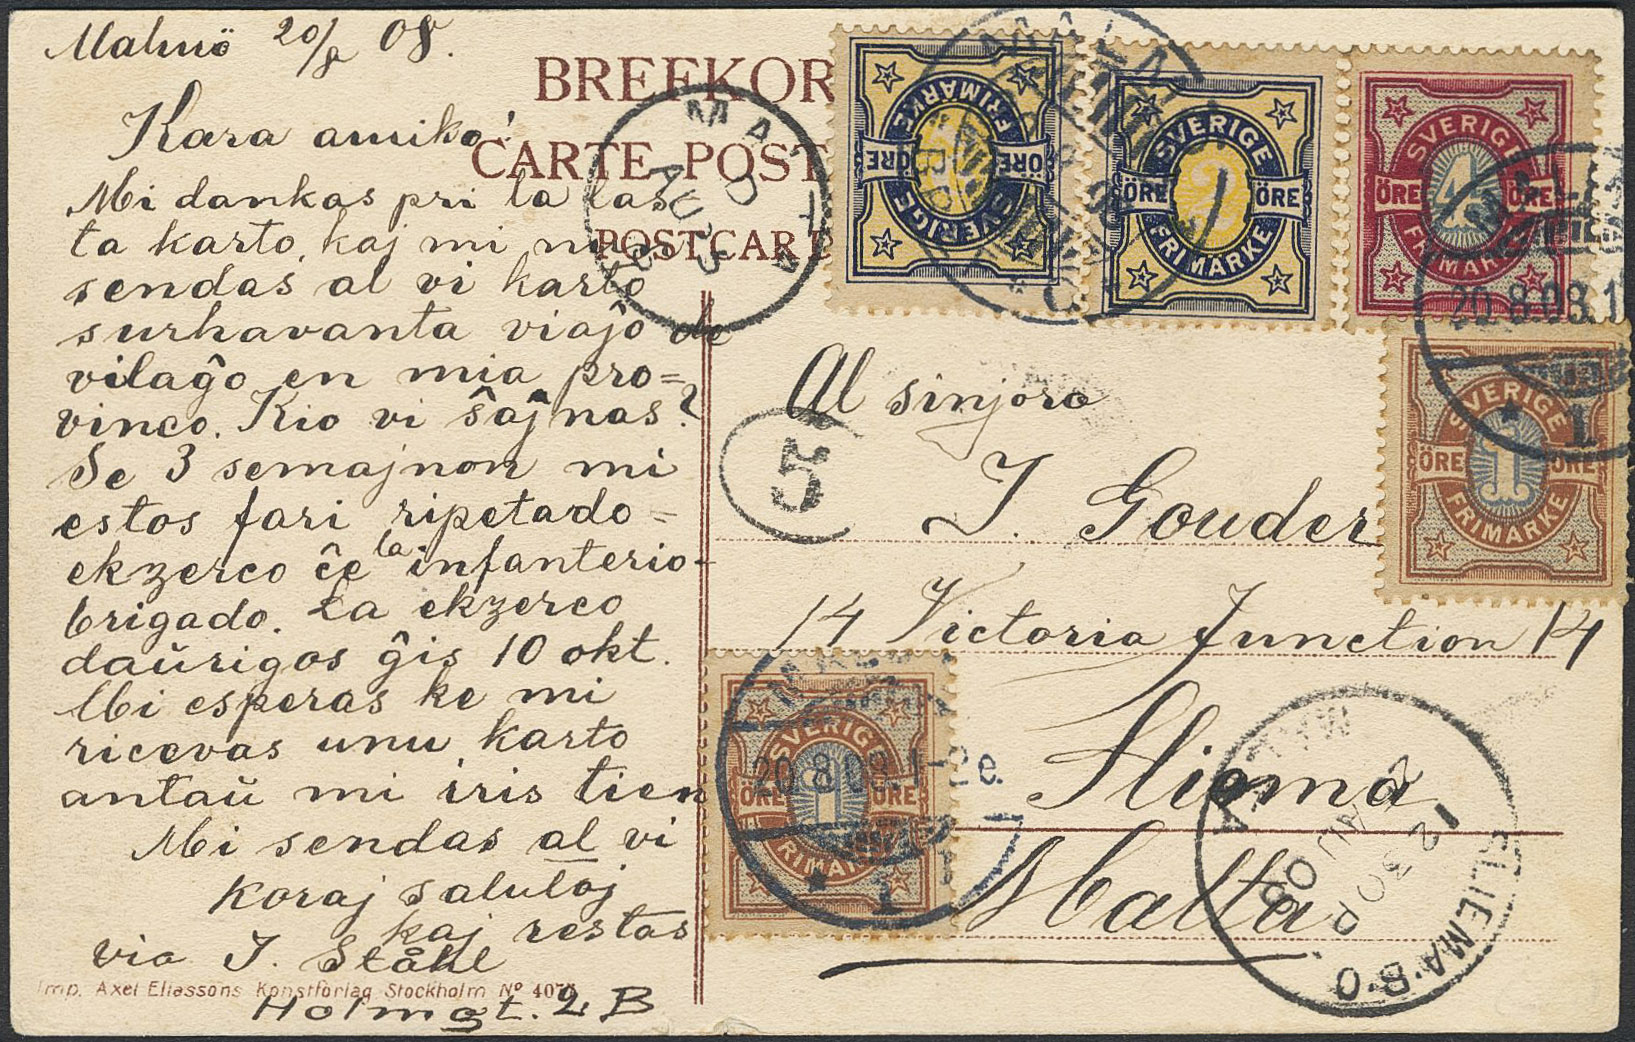 Malmö 20/8 08.
Kara amiko!
Mi dankas pri la las
ta karto, kaj mi nun
sendas al vi karto
surhavanta viaĵo de
vilaĝo en mia pro=
vinco. Kio vi ŝaĵnas?
Se 3 semajnon mi
estos fari ripetado=
ekzerco ĉe la infanterio-
brigado. La ekzerco
daŭrigos ĝis 10 okt.
Mi esperas ke mi
ricevas unu karto
antaŭ mi iris tien
Mi sendas al vi
koraj salutoj
kaj restas
via J. Ståhl
Imp. Axel Eliassons Konstförlag Stockholm Nº 407
Holmgt. 2 B
BREFKOR
CARTE POST
POSTCARD
MALTA
AU
08
SVERIGE
ÖRE ÖRE
FRIMÄRKE
SVERIGE
ÖRE 2 ÖRE
FRIMÄRKE
SVERIGE
ÖRE 4
FRIMÄRKE
20.8.08.1
1
SVERIGE
ÖRE 1 ÖRE
FRIMÄRKE
5
Al sinjoro
J. Gouder
14 Victoria Junction 14
Sliema
Malta.
SVERIGE
ÖRE 1 ÖRE
FRIMÄRKE
20.8.08.1-2 e.
1
MALTA
AU 08
2 30 P
SLIEMA·B·O